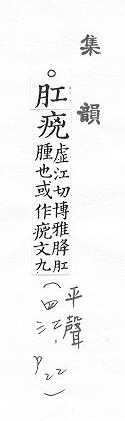 集韻
○肛
虛江切博雅胮肛
腫也或作 文九
平聲
(四江,P22)